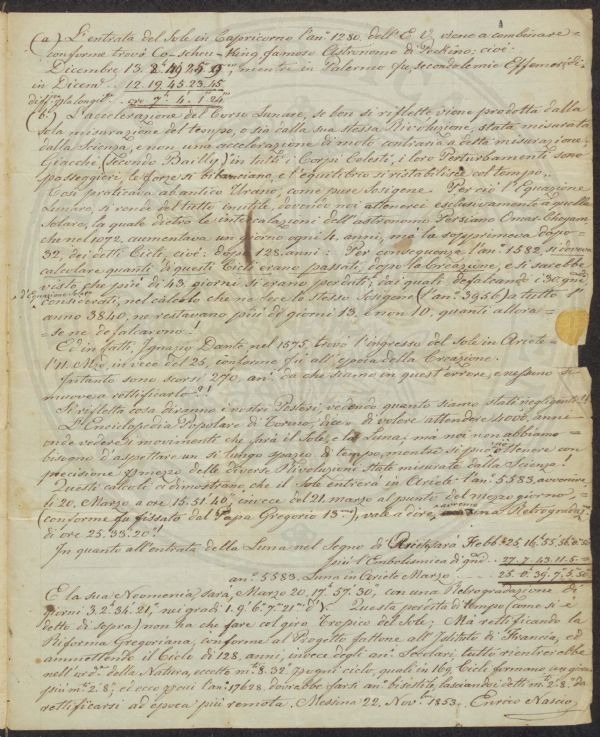 (a) L'entrata del Sole in Capricorno l'an.º 1280. dell'E. V. viene a combinare =
conforme trovò Co-scheu-King famoso Astronomo di Peckino: cioè
Dicembre 13. 2. 49 25. 9, mentre in Palermo fu, secondo le mie Effemeridi,
in Dicem.e 12. 19. 45. 23. 45
diff.za p la longit.e ore 7. 4. 1. 24
(b.) L'accelerazione del Corso Lunare, se ben si riflette, viene prodotta dalla
sola misurazione del tempo, o sia dalla sua stessa Rivoluzione, stata misurata
dalla Scienza, e non una accelerazione di moto contraria a detta misurazione.
Giacchè (secondo Bailly) in tutti i Corpi Celesti, i loro Perturbamenti sono
passeggieri, le forze si bilanciano, e l'equilibrio si ristabilisce col tempo.
Così praticava ab antico Urano, come pure Sosigene. Per ciò l'Equazione
Lunare, si rende del tutto inutile, dovendo noi attenerci esclusivamente a quella
Solare, la quale dietro le intercalazioni dell'astronomo Persiano Omar-Cheyam
che nel 1072, aumentava un giorno ogni 4. anni, ma lo sopprimeva dopo =
32, dei detti Cicli, cioè: dopo 128. anni: Per conseguenza l'an.º 1582, si doveva
calcolare quanti di questi Cicli erano passati, dopo la Creazione, e si sarebbe
visto che più di 43. giorni si erano perduti; dai quali defalcandi i 30. gni
d'Equazione Solare
considerati, nel calcolo che ne diede lo stesso Sosigene (l'an.º 3956) a tutto l'
anno 3840, ne restavano più di giorni 13. e non 10, quanti allora =
se ne defalcarono!
Ed in fatti, Ignazio Dante nel 1575, trovò l'ingresso del Sole in Ariete =
l'11. Mzo, in vece del 25, conforme fu all'epoca della Creazione.
Intanto sono scorsi 270, ani da che siamo in quest'errore, e nessuno si
muove a rettificarlo?!
Si rifletta cosa diranno i nostri Posteri, vedendo quanto siamo stati negligenti!!
L'Enciclopedia Popolare di Torino, dice = di volere attendere 4000, anni =
onde vedere i movimenti che farà il Sole, e la Luna; ma noi non abbiamo =
bisogno d'aspettare un sì lungo spazio di tempo, mentre si può ottenere con
precisione p mezzo delle diverse Rivoluzioni state misurate dalla Scienza!
Questi calcoli ci dimostrano, che il Sole entrerà in Ariete l'an.º 5583, avvenire
li 20. Marzo, a ore 15. 51. 40, invece del 21. marzo al punto del mezzo giorno,
(conforme fu fissato dal Papa Gregorio 13.mo), vale a dire una Retrogradazne
avremo
di ore 25. 33. 20!
In quanto all'entrata della Luna nel Segno di Ariete, sarà Febb.º 25. 16. 55. 56. 0. 50
Più l'Embolesmica di gni 27. 7. 43. 11. 5 =
an.º 5583. Luna in Ariete Marzo 25. 0. 39. 7. 5. 50
E la sua Neomenia sarà, Marzo 20. 17. 57. 30, con una Retrogradazione di
giorni 3. 2. 34. 21, nei gradi 1. 9. 6. 7. 21 di ♈. Questa perdita di tempo (come si è
detto di sopra) non ha che fare col giro Tropico del Sole; Ma rettificando la
Riforma Gregoriana, conforme al Progetto fattone all'Istituto di Francia, ed
ammettendo il Ciclo di 128, anni, invece degli ani Secolari, tutto rientrerebbe
nell'ord.e della Natura, eccetto m.ti 8. 32. p ogni ciclo, quali in 169. Cicli formano un giorno
più m.ti 2. 8, ed ecco p cui l'an.º 17628. dovrebbe farsi an.º bisestile, lasciando i detti m.ti 2. 8. da
rettificarsi ad epoca più remota. Messina 22. Nov.bre 1853. Enrico Nascio